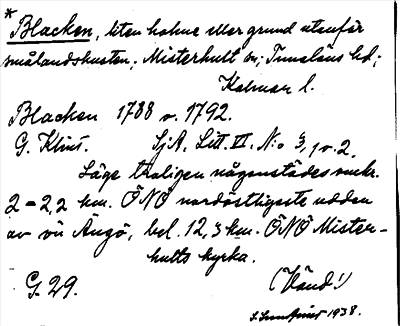 *
Blacken, liten holme eller grund utanför
smålandskusten; Misterhult sn; Tunaläns hd;
Kalmar l.
Blacken 1788 o. 1792.
G. Klint. SjA. Litt. VI. N:o 3, 1 o. 2.
Läge troligen någonstädes omkr.
2–2,2 km. ÖNÖ nordöstligaste udden
av ön Ängö, bel. 12,3 km. ÖNÖ Mister-
hults kyrka.
G. 29. (Vänd!)
1938.